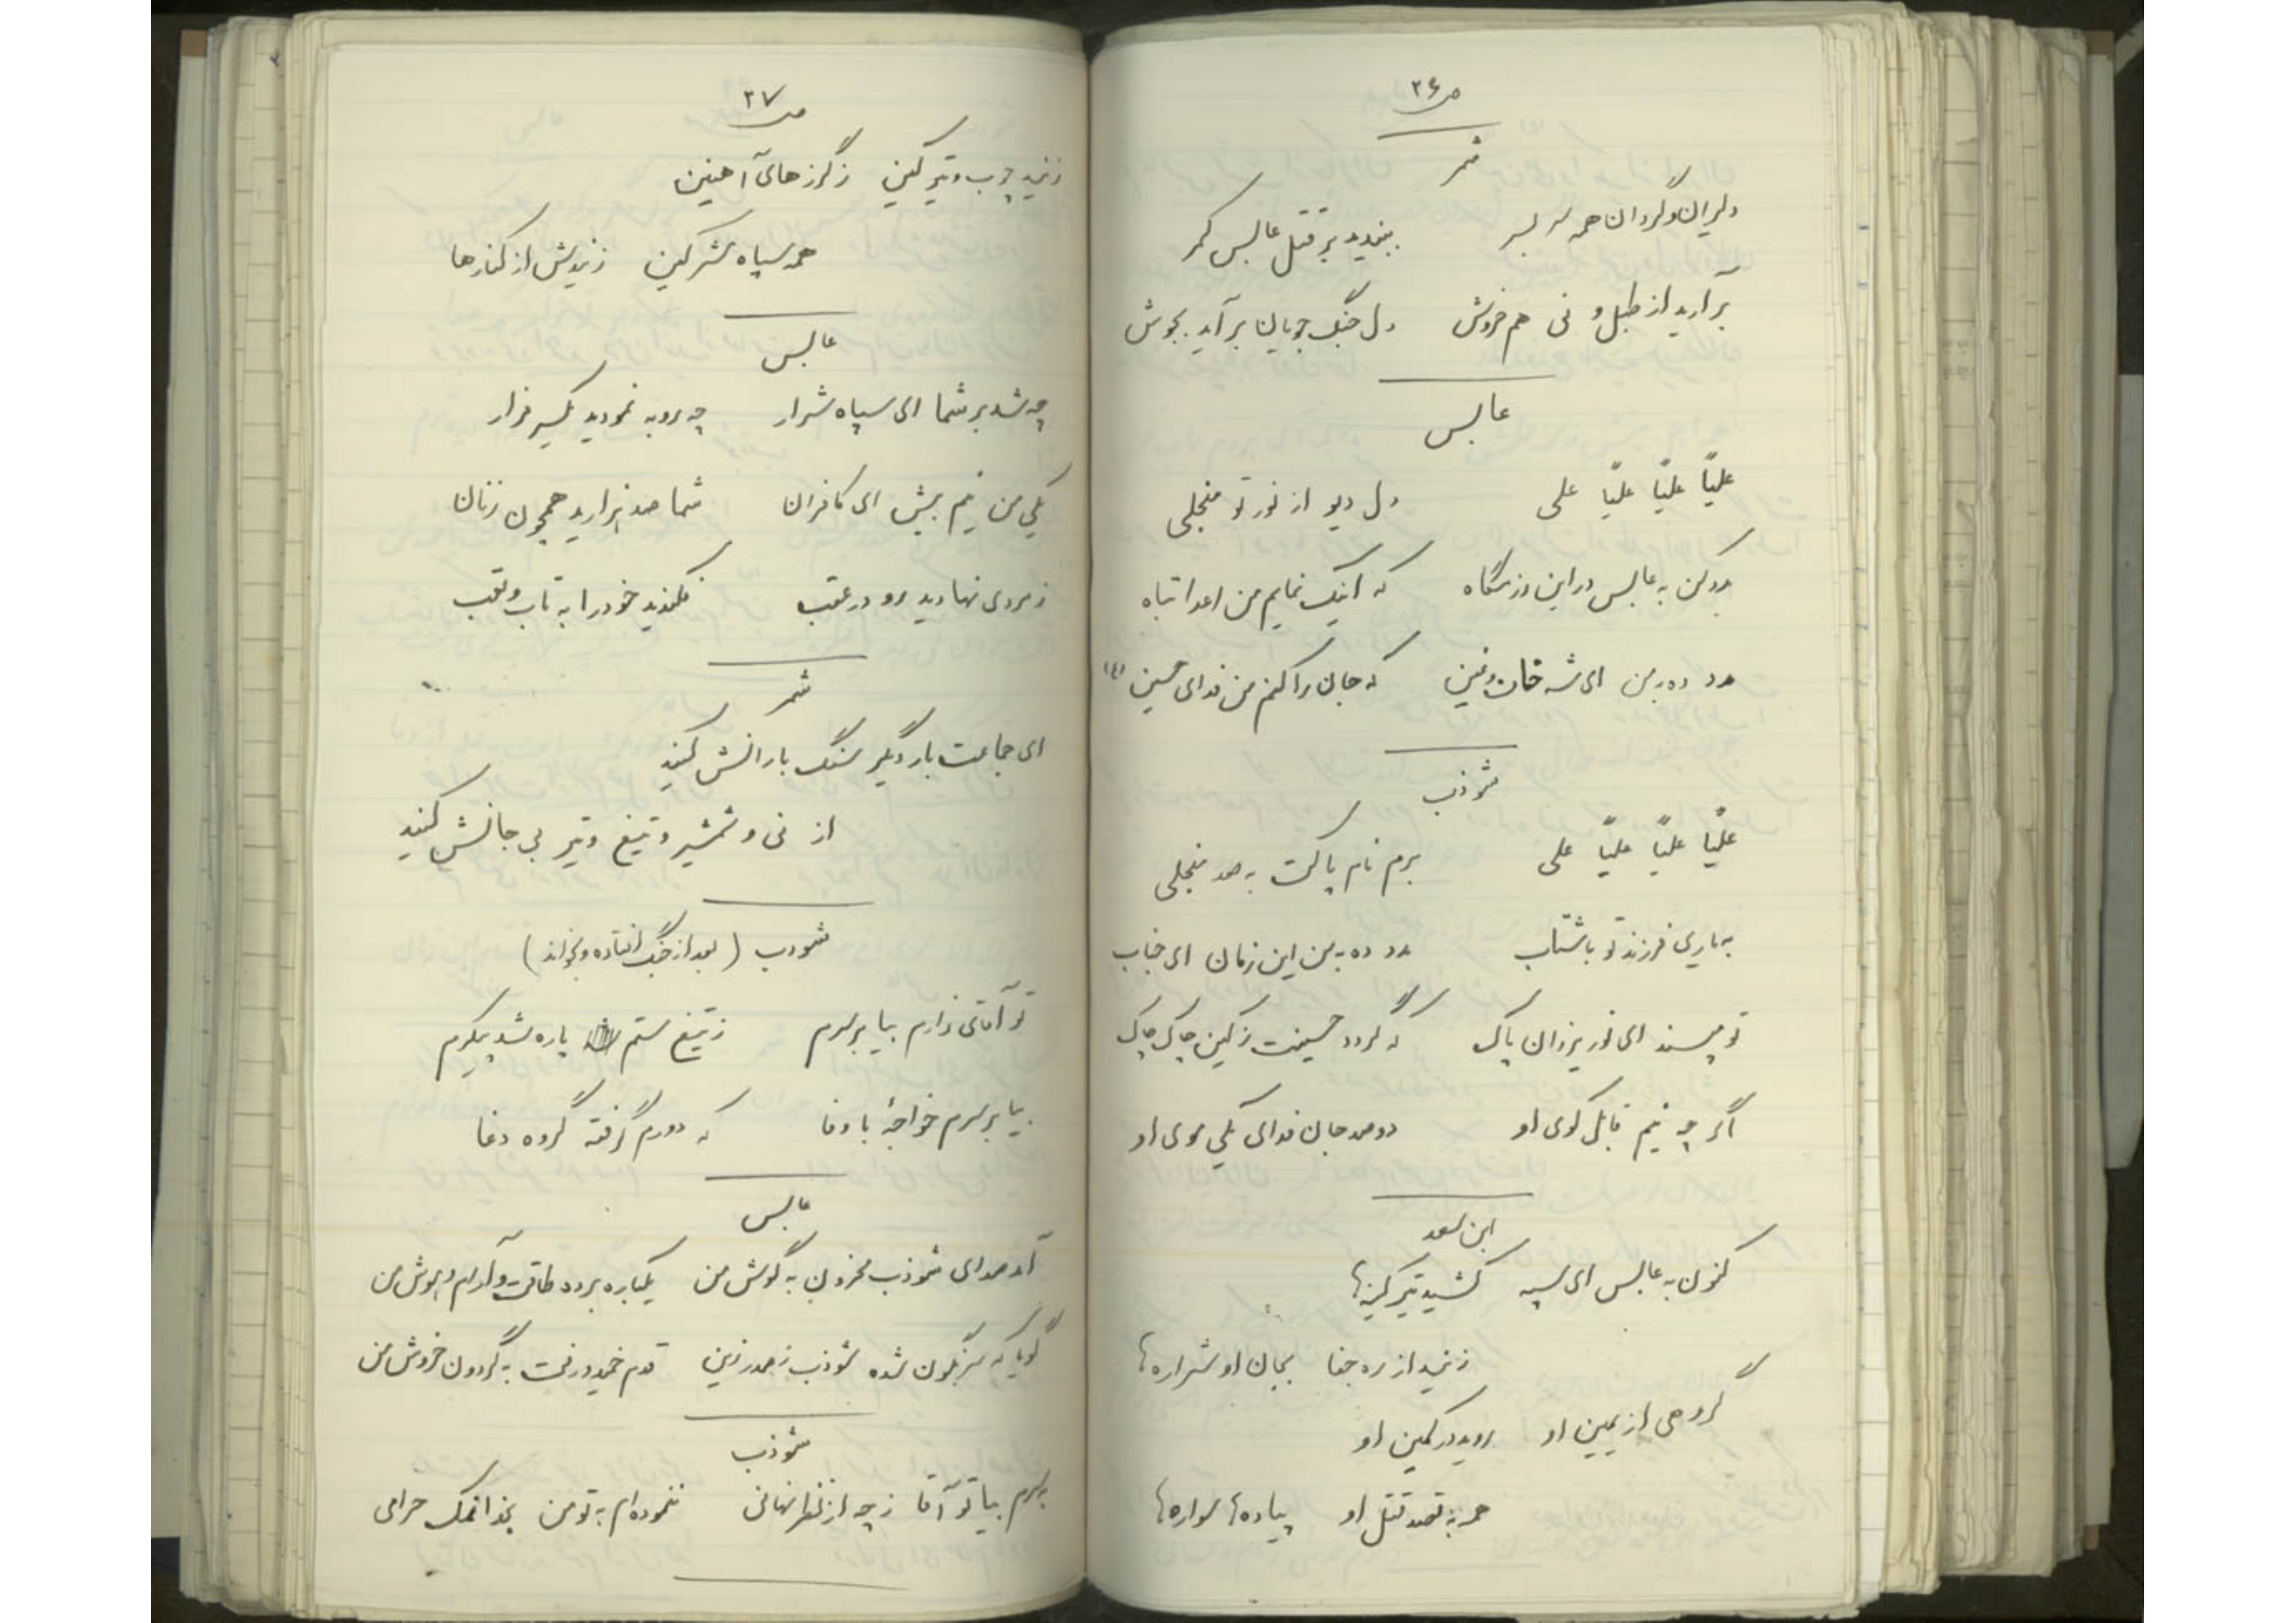 ص ۲۶
شمر
دلیران و گردان همه سر بسر ببندید بر قتل عابس کمر
برآرید از طبل و نی هم خروش دل جنگ جویان برآید بجوش
عابس
علیاً علیاً علیاً علی دل دیو از نور تو منجلی
مدد کن به عابس در این رزمگاه که اینک نمایم من اعدا تباه
مدد ده بمن ای شه خافقین که جان را کنم من فدای حسین (ع)
شوذب
علیاً علیاً علیاً علی برم نام پاکت به صد منجلی
به یاری فرزند تو با شتاب مدد ده به من این زمان ای جناب
تو مپسند ای نور یزدان پاک که گردد حسینت ز کین چاک چاک
اگر چه نیم قابل کوی او دو صد جان فدای یکی موی او
ابن سعد
کنون به عابس ای سپه کشید تیر کینه‌ها
زنید از ره جفا بجان او شراره‌ها
گروهی از یمین او روید در کمین او
همه به قصد قتل او پیاده‌ها سواره‌ها
ص ۲۷
زنید چوب و تیر کین ز گرزهای آهنین
همه سپاه مشرکین زنیدش از کنارها
عابس
چه شد بر شما ای سپاه شرار چه روبه نمودید یکسر فرار
یکی من نیم بیش ای کافران شما صد هزارید همچون زنان
ز مردی نهادید رو در عقب فکندید خود را به تاب و تعب
شمر
ای جماعت بار دیگر سنگ بارانش کنید
از نی و شمشیر و تیغ و تیر بی جانش کنید
شوذب (بعد از جنگ افتاده و بخواند)
تو آقائی دارم بیا بر سرم ز تیغ ستم پاره شد پیکرم
بیا بر سرم خواجۀ با وفا که دورم گرفته گروه دغا
عابس
آمد صدای شوذب محزون به گوش من یکباره برد طاقت و آرام و هوش من
گویا که سرنگون شده شوذب ز صدر زین قدم خمید و رفت به گردون خروش من
شوذب
به سرم بیا تو آقا ز چه از نظر نهانی ننموده‌ام به تو من بخدا نمک حرامی